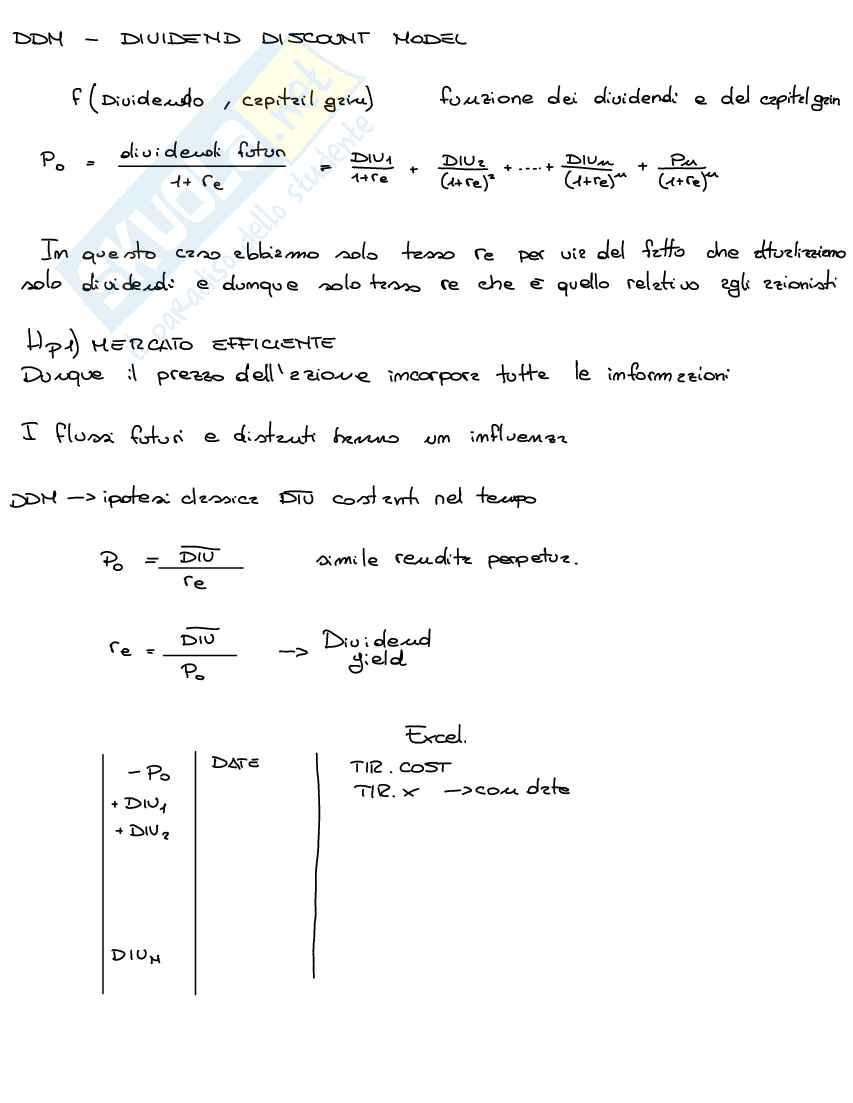 DDM - DIVIDEND DISCOUNT MODEL
f (Dividendo, capital gain) funzione dei dividendi e del capital gain
P₀ = dividendi futuri / 1+re = DIV1 / 1+re + DIV2 / (1+re)² + ....+ DIVn / (1+re)ⁿ + Pn / (1+re)ⁿ
In questo caso abbiamo solo tasso re per via del fatto che attualizziamo
solo dividendi e dunque solo tasso re che è quello relativo agli azionisti
Hp1) MERCATO EFFICIENTE
Dunque il prezzo dell'azione incorpora tutte le informazioni
I flussi futuri e distanti hanno un influenza
DDM -> ipotesi classica DIV costanti nel tempo
P₀ = DIV / re simile rendita perpetua.
re = DIV / P₀ -> Dividend
yield
Excel.
- P₀ DATE TIR.COST
+ DIV1 TIR.X -> con date
+ DIV2
DIVN
SKUOLA.net
il paradiso dello studente